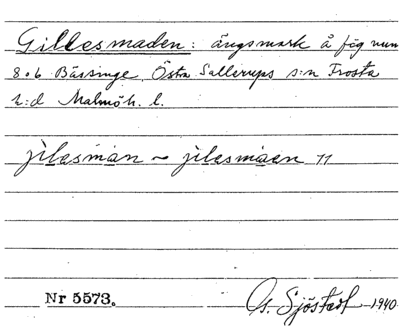 Gillesmaden: ängsmark å fäg num
8 o 6 Bässinge, Östra Sallerups s:n Frosta
h:d Malmöh. l.
jilesman ~ jilesmaen 11
Nr 5573.
Sjöstedt 1940